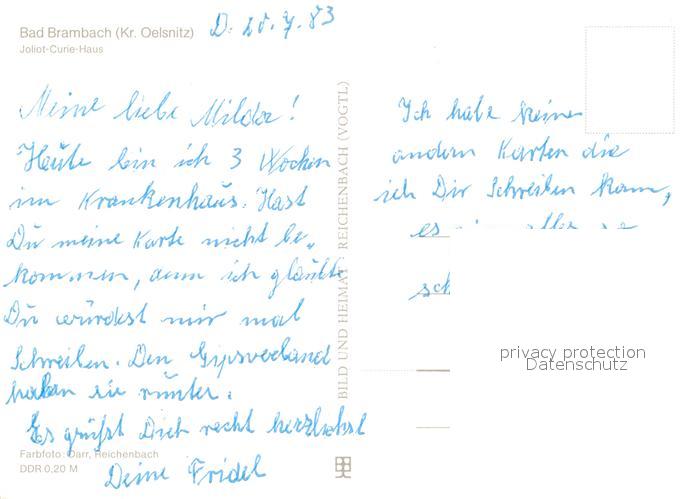 Bad Brambach (Kr. Oelsnitz)
Joliot-Curie-Haus
Meine liebe Milda!
Heute bin ich 3 Wochen
im Krankenhaus. Hast
Du meine Karte nicht be-
kommen, denn ich glaubte
Du würdest mir mal
Schreiben. Den Gipsverband
haben sie runter.
Es grüßt Dich recht herzlichst
Deine Fridel
Farbfoto: Darr, Reichenbach
DDR 0,20 M
BILD UND HEIMAT REICHENBACH (VOGTL)
Ich habe keine
andern Karten die
ich Dir Schreiben kann,
es
sch
privacy protection
Datenschutz